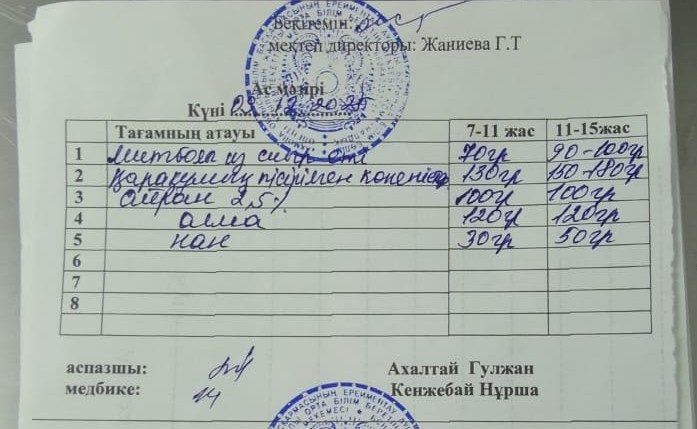 Бекітемін:
мектеп директоры: Жаниева Г.Т
Ас мәзірі
Күні 09.12.2025
Тағамның атауы 7-11 жас 11-15жас
1 Митболы из сиыр еті 70гр 90-100гр
2 Қарақұмық пісірілген көкөніс 130гр 150-180гр
3 Айран 2,5% 100гр 100гр
4 алма 120гр 120гр
5 нан 30гр 50гр
6
7
8
аспазшы: Ахалтай Гулжан
медбике: Кенжебай Нұрша